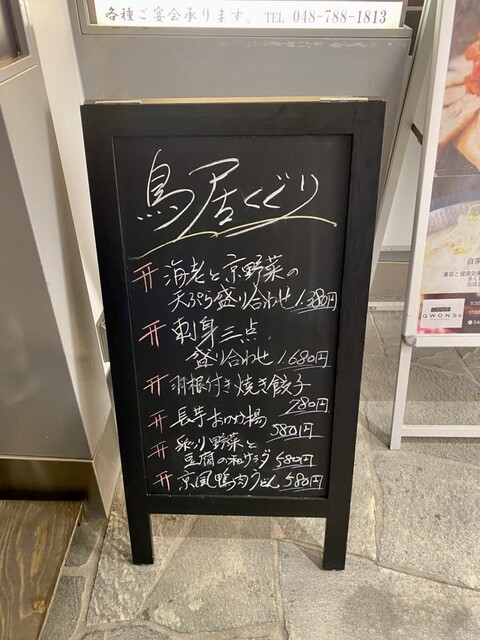 各種ご宴会承ります。 TEL 048-788-1813
鳥居くぐり
海老と京野菜の
天ぷら盛り合わせ 1.380円
刺身三点
盛り合わせ 1680円
羽根付き焼き餃子
780円
長芋おかか揚
580円
炙り野菜と
豆腐の和サラダ 680円
京風鴨肉うどん 580円
QWONS